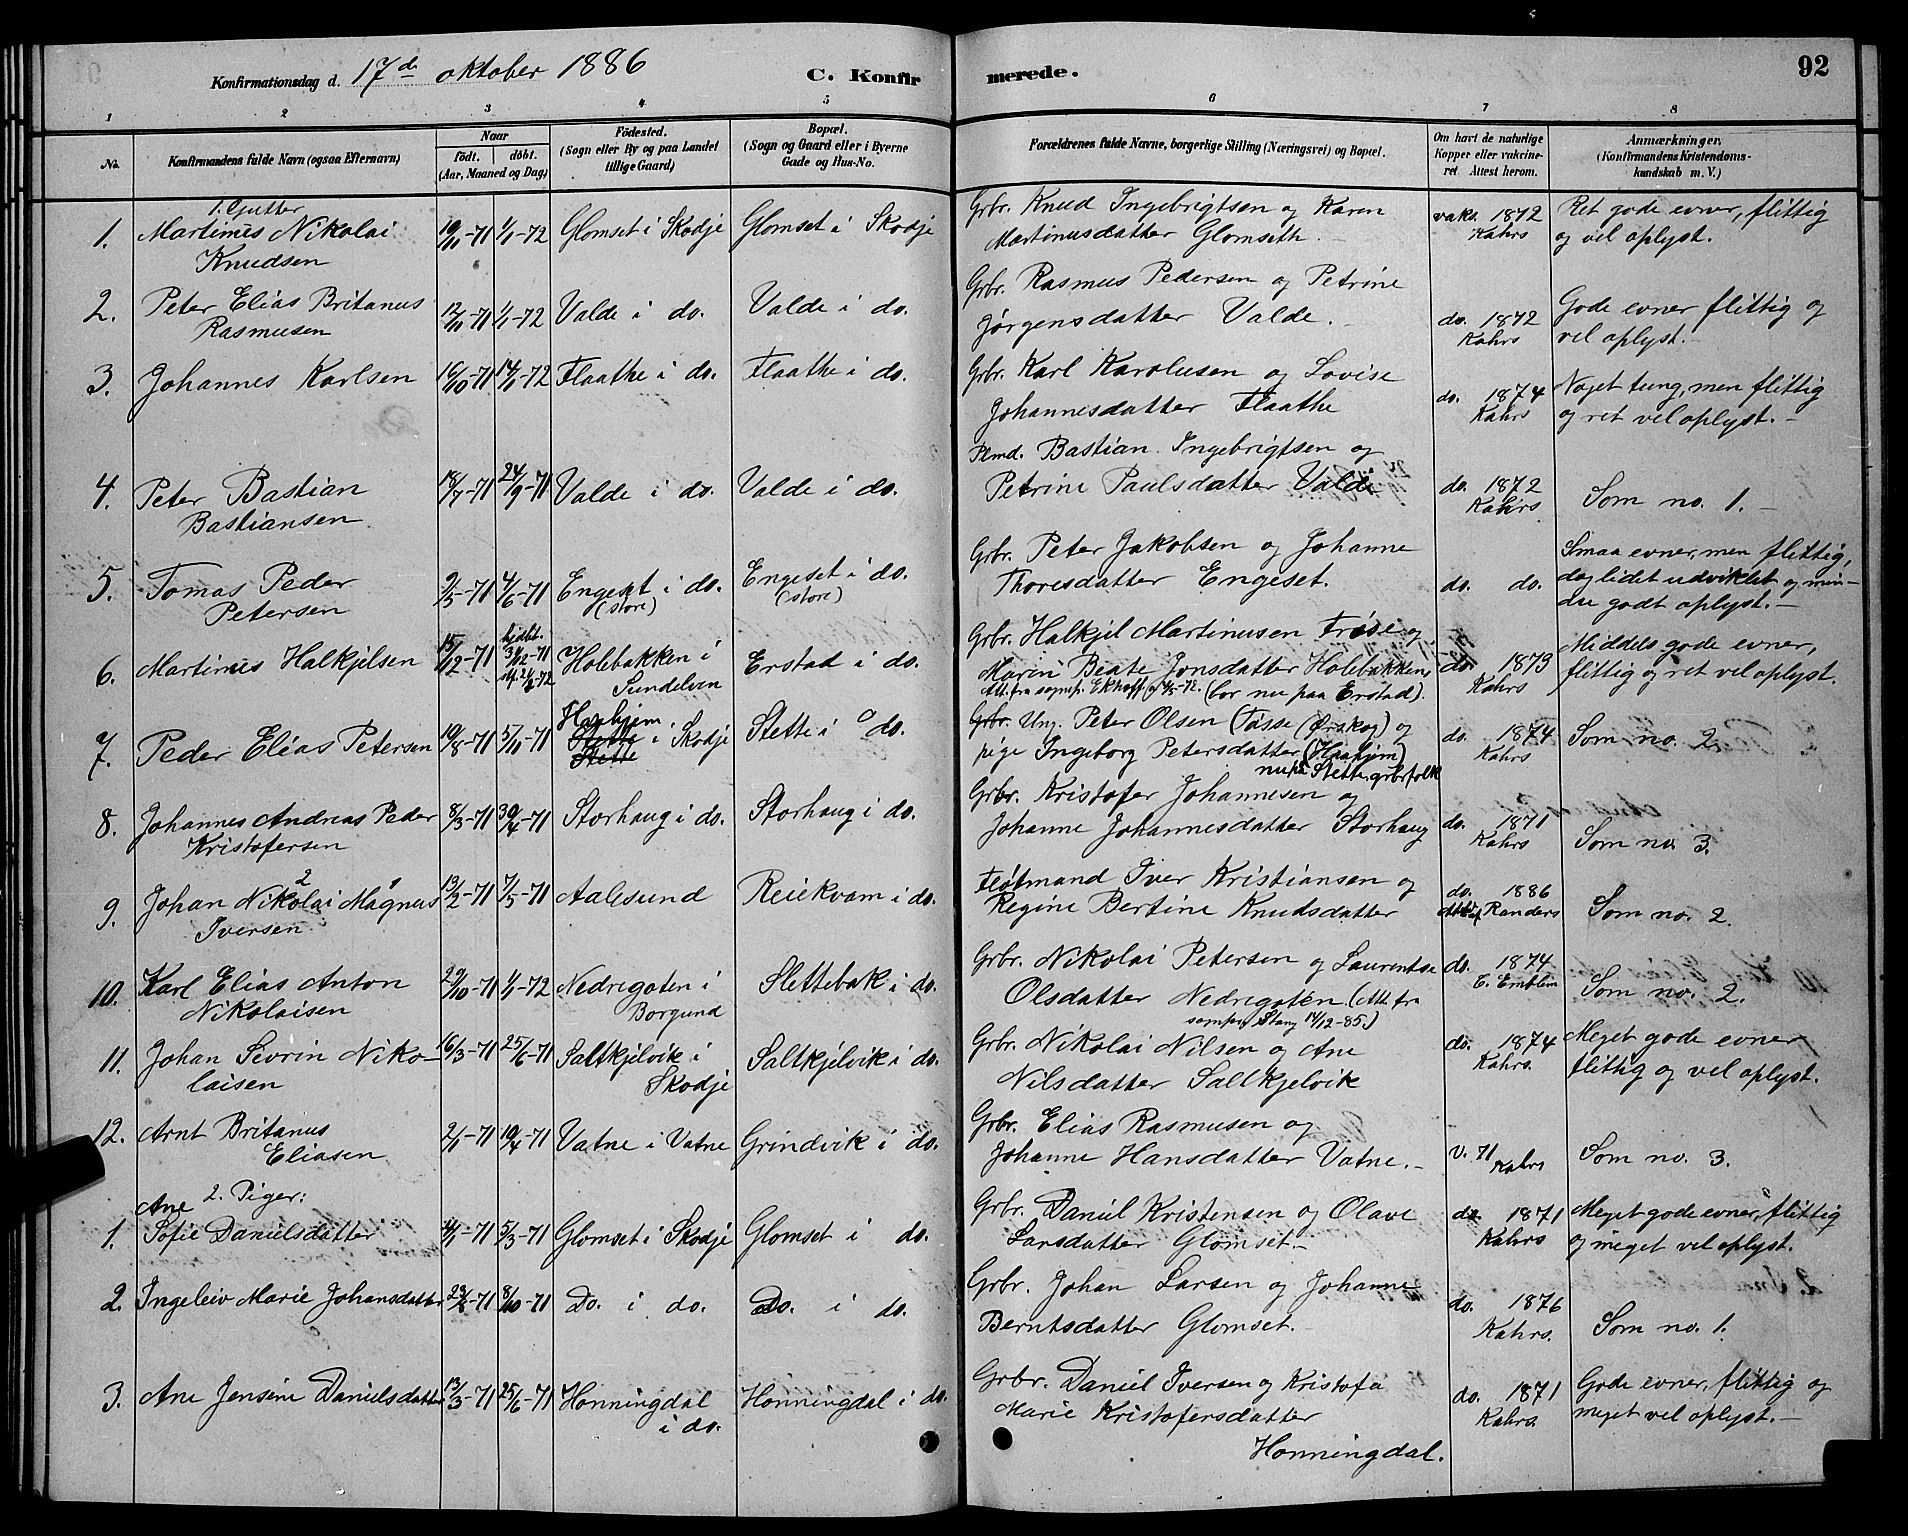 Konfirmationsdag d. 17d. oktober 1886 C. Konfirmerede. 92
1 2 3 4 5 6 7 8
No. Konfirmandens fulde Navn (ogsaa Efternavn) Naar født. døbt. (Aar, Maaned og Dag) Fødested. (Sogn eller By og paa Landet tillige Gaard) Bopæl. (Sogn og Gaard eller i Byerne Gade og Hus-No.) Forældrenes fulde Navne, borgerlige Stilling (Næringsvei) og Bopæl. Om havt de naturlige Kopper eller vakcineret Attest herom. Anmærkninger. (Konfirmandens Kristendomskundskab m. V.)
1. Gutter
1. Martinus Nikolai Knudsen 19/11-71 1/1-72 Glomset i Skodje Glomset i Skodje Grbr. Knud Ingebrigtsen og Karen Martinusdatter Glomseth. vaks. 1872 Kahrs Ret gode evner, flittig og vel oplyst.
2. Peter Elias Britanus Rasmusen 12/11-71 1/1-72 Valde i do. Valde i do. Grbr. Rasmus Pedersen og Petrine Jørgensdatter Valde. do. 1872 Kahrs Gode evner flittig og vel oplyst.
3. Johannes Karlsen 16/10-71 14/1-72 Flaathe i do. Flaathe i do. Grbr. Karl Karolusen og Lovise Johannesdatter Flaathe do. 1874 Kahrs Noget tung, men flittig og ret vel oplyst.
4. Peter Bastian Bastiansen 18/7-71 24/9-71 Valde i do. Valde i do. Plmd. Bastian Ingebrigtsen og Petrine Paulsdatter Valde do. 1872 Kahrs Som no. 1.
5. Tomas Peder Petersen 9/5-71 4/6-71 Engeset i do. (store) Engeset i do. (store) Grbr. Peter Jakobsen og Johanne Thoresdatter Engeset. do. do. Smaa evner, men flittig, dog lidet udviklet og mindre godt oplyst.
6. Martinus Halkjelsen 15/12-71 hjdbt. 31/12-71 Holebakken i Sundelven Erstad i do. Grbr. Halkjel Martinusen og Marin Beate Jonsdatter Holebakken (bor nu paa Erstad). do. 1873 Kahrs Middels gode evner, flittig og ret vel oplyst.
7. Peder Elias Petersen 19/8-71 5/11-71 Haahjem i Skodje Stette i do. Ung. Peter Olsen (Tusse (Ørskog) og pige Ingeborg Petersdatter (Haahjem) nu på Stette, grbrfolk do. 1874 Kahrs Som no. 2
8. Johannes Andreas Peder Kristofersen 8/3-71 30/4-71 Storhaug i do. Storhaug i do. Grbr. Kristofer Johannesen og Johanne Johannesdatter Storhaug do. 1871 Kahrs Som no. 3.
9. Johan Nikolai Magnus Iversen 13/2-71 7/5-71 Aalesund Reiekvam i do. Fløtmand Iver Kristiansen og Regine Bertine Knudsdatter do. 1886 Randers Som no. 2.
10. Karl Elias Anton Nikolaisen 29/10-71 1/1-72 Nedregoten i Borgund Slettebak i do. Grbr. Nikolai Petersen og Laurentse Olsdatter Nedregoten (Att. fra sognpr. Stang 14/12-85.) do. 1874 E. Emblem Som no. 2.
11. Johan Sevrin Nikolaisen 16/3-71 25/6-71 Saltkjelvik i Skodje Saltkjelvik i do. Grbr. Nikolai Nilsen og Ane Nilsdatter Saltkjelvik do. 1874 Kahrs. Meget gode evner flittig og vel oplyst.
12. Arnt Britanus Eliasen 2/1-71 10/4-71 Vatne i Vatne Grindvik i do. Grbr. Elias Rasmusen og Johanne Hansdatter Vatne. v. 71 Kahrs Som no. 3.
2. Piger:
1. Ane Sofie Danielsdatter 11/1-71 5/3-71 Glomset i Skodje Glomset i do. Grbr. Daniel Kristensen og Olave Larsdatter Glomset. do. 1871 Kahrs Meget gode evner, flittig og meget vel oplyst.
2. Ingeleiv Marie Johansdatter 8/10-71 Do. i do. Do. i do. Grbr. Johan Larsen og Johanne Berntsdatter Glomset. do. 1876 Kahrs. Som no. 1.
3. Ane Jensine Danielsdatter 13/3-71 25/6-71 Honningdal i do. Honningdal i do. Grbr. Daniel Iversen og Kristofa Marie Kristofersdatter Honningdal. do. 1871 Kahrs. Gode evner, flittig og meget vel oplyst.